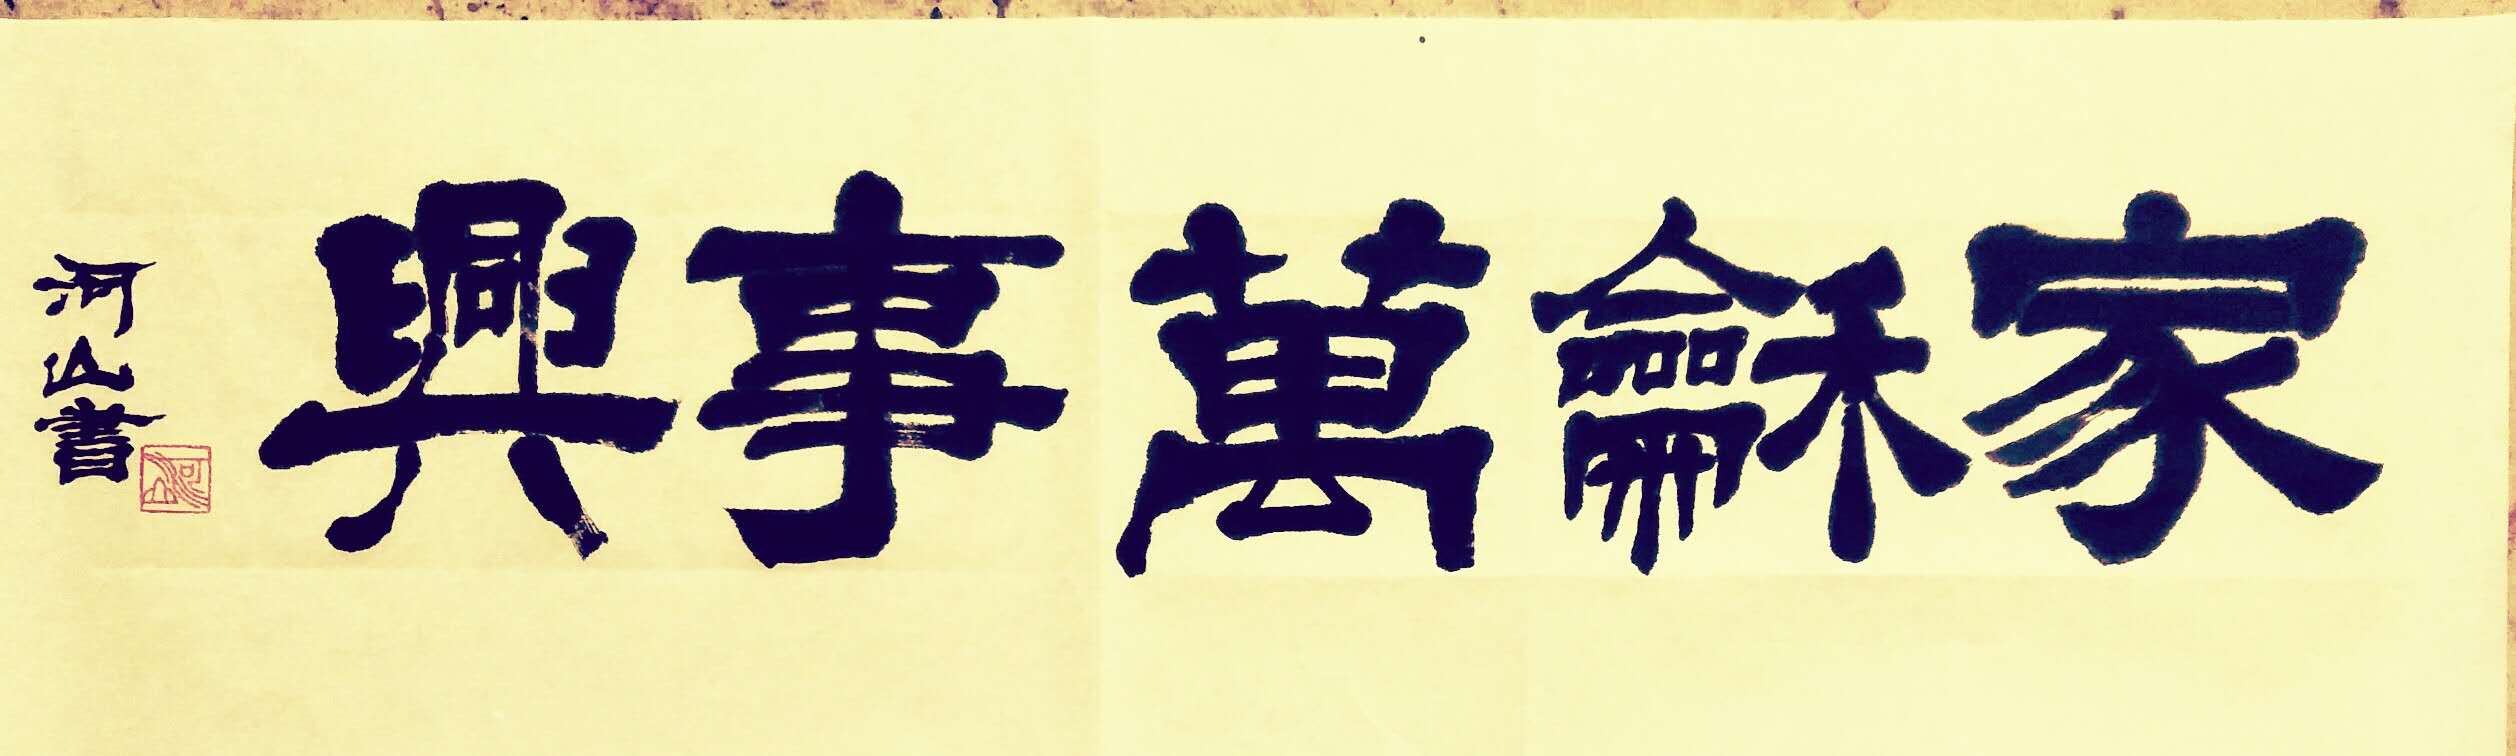 家龢萬事興
河山書